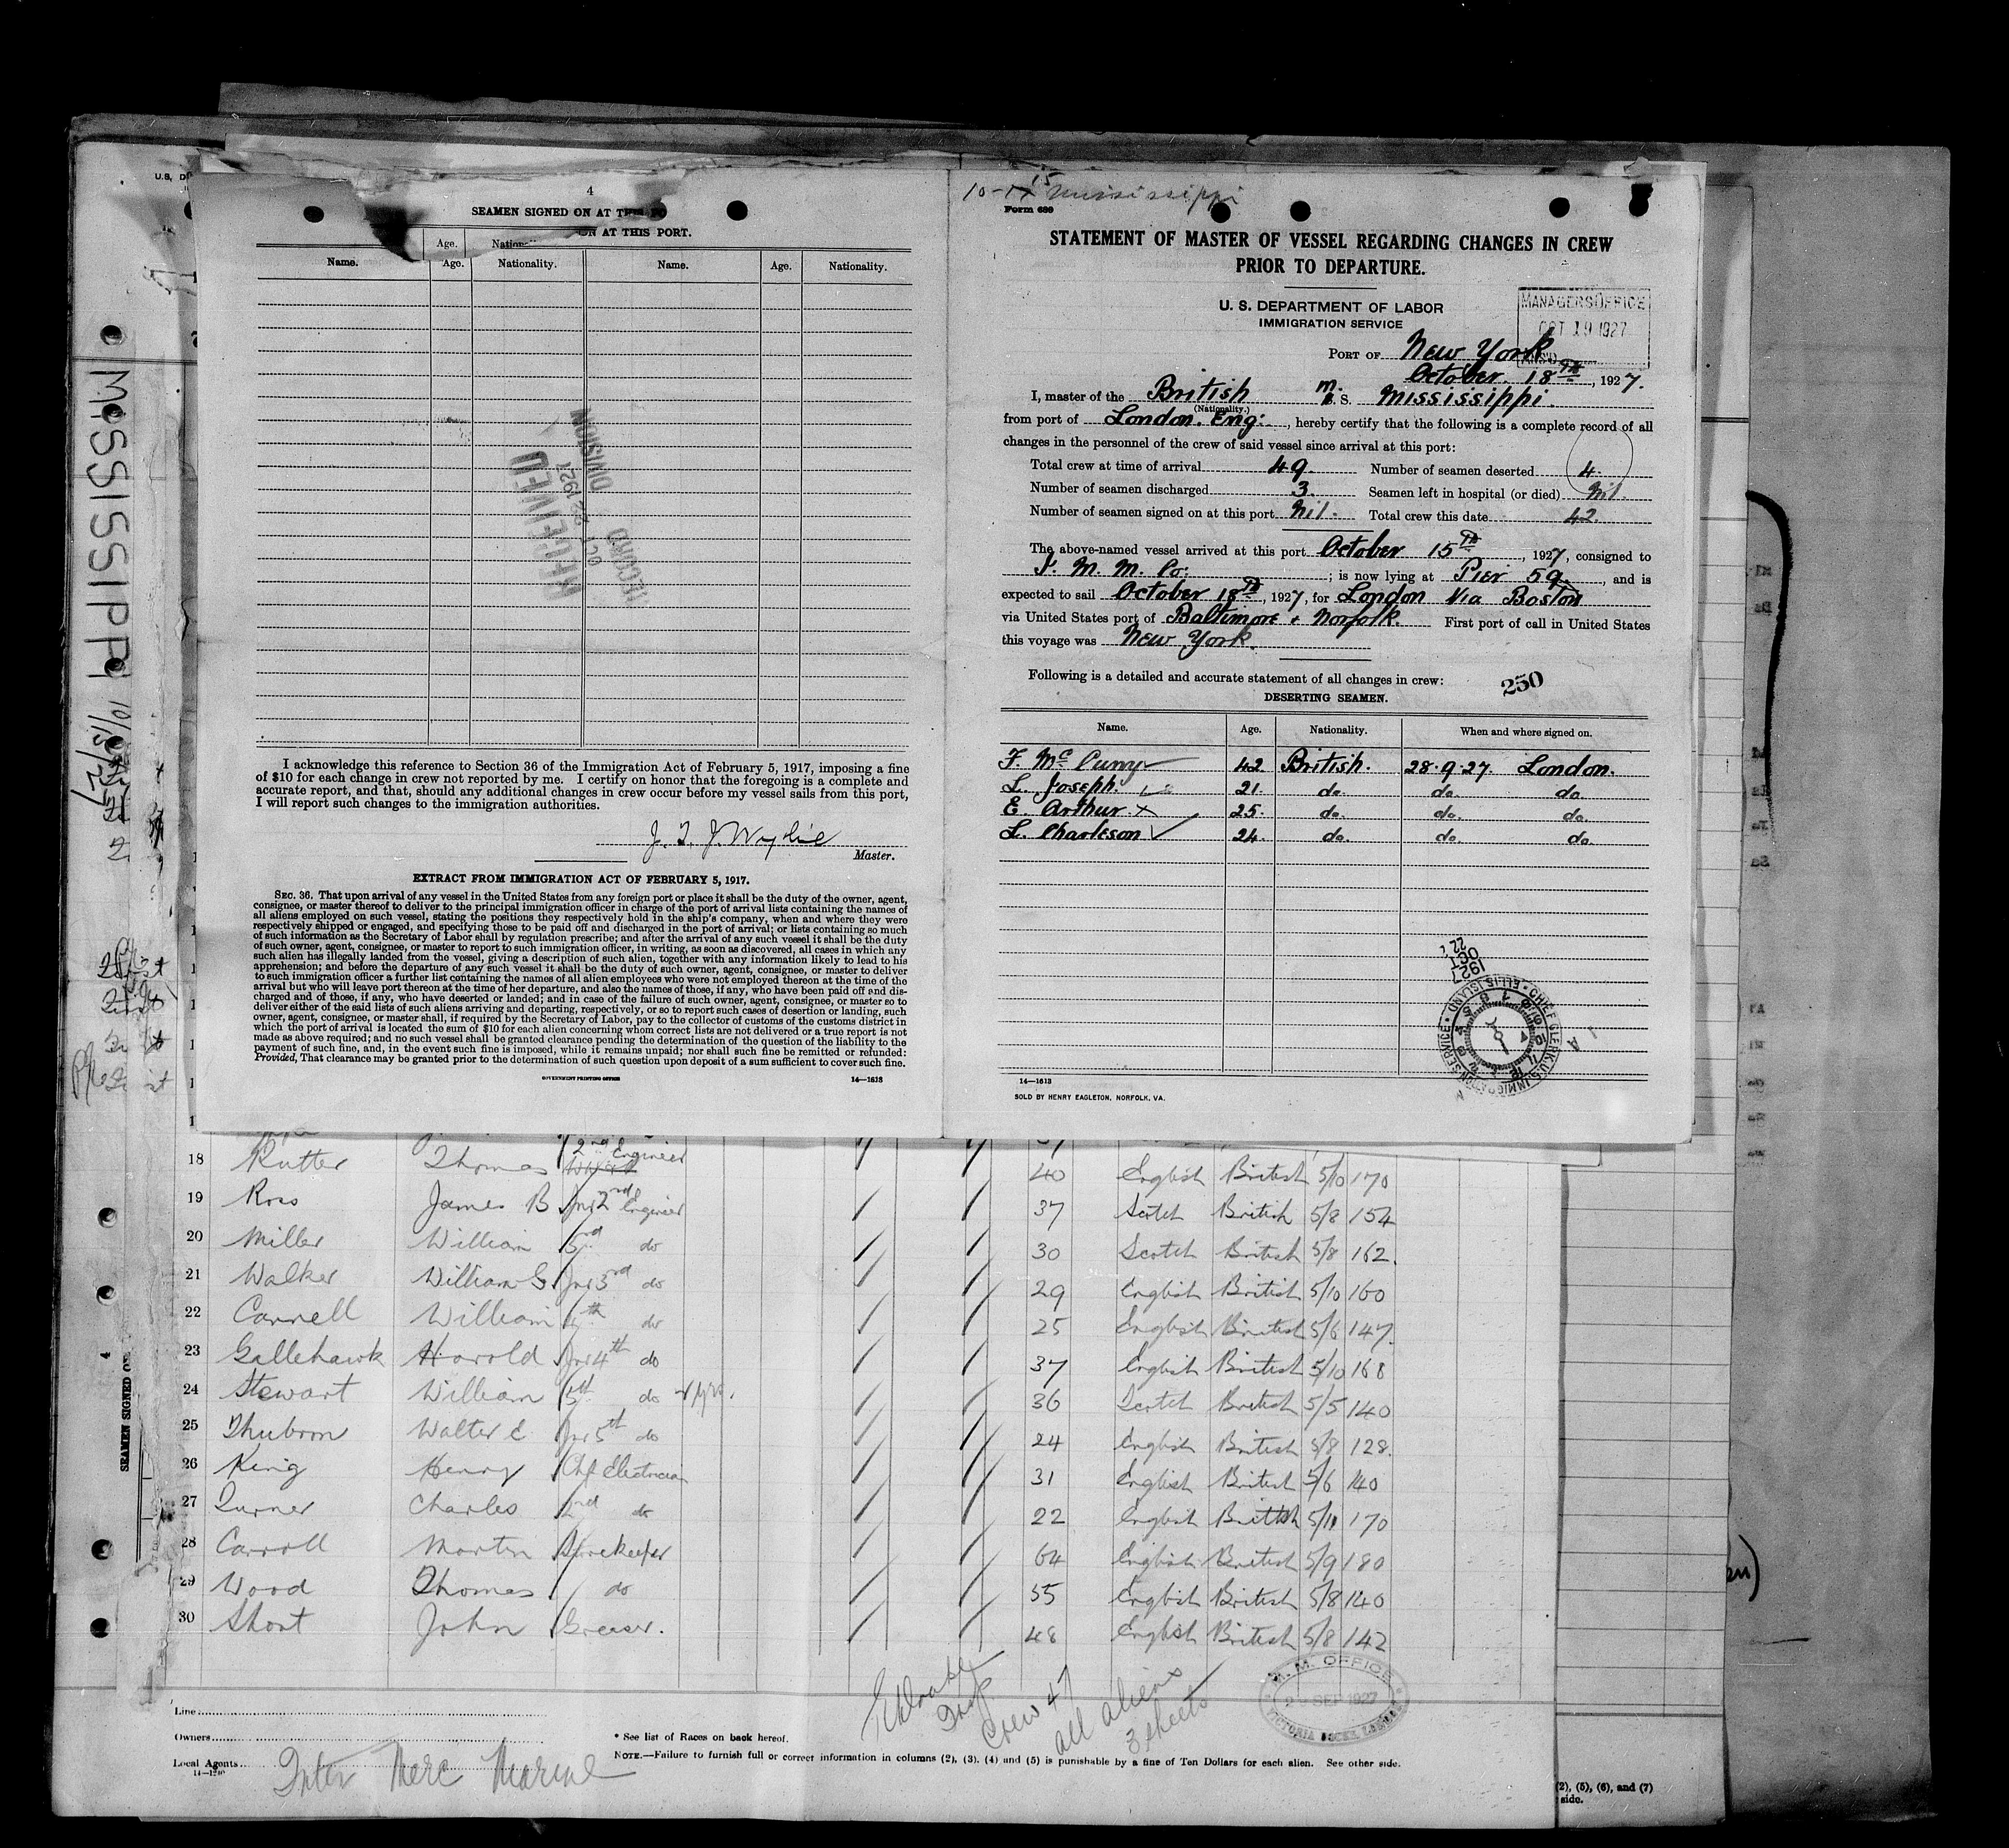 4
SEAMEN SIGNED ON AT
ON AT THIS PORT.
Age.
Name. Age. Nationality. Name. Age. Nationality.
RECEIVED
OCT 22 1927
RECORD DIVISION
I acknowledge this reference to Section 36 of the Immigration Act of February 5, 1917, imposing a fine
of $10 for each change in crew not reported by me. I certify on honor that the foregoing is a complete and
accurate report, and that, should any additional changes in crew occur before my vessel sails from this port,
I will report such changes to the immigration authorities.
Wylie
Master.
EXTRACT FROM IMMIGRATION ACT OF FEBRUARY 5, 1917.
SEC. 36. That upon arrival of any vessel in the United States from any foreign port or place it shall be the duty of the owner, agent,
consignee, or master thereof to deliver to the principal immigration officer in charge of the port of arrival lists containing the names of
all aliens employed on such vessel, stating the positions they respectively hold in the ship's company, when and where they were
respectively shipped or engaged, and specifying those to be paid off and discharged in the port of arrival; or lists containing so much
of such information as the Secretary of Labor shall by regulation prescribe; and after the arrival of any such vessel it shall be the duty
of such owner, agent, consignee, or master to report to such immigration officer, in writing, as soon as discovered, all cases in which any
such alien has illegally landed from the vessel, giving a description of such alien, together with any information likely to lead to his
apprehension; and before the departure of any such vessel it shall be the duty of such owner, agent, consignee, or master to deliver
to such immigration officer a further list containing the names of all alien employees who were not employed thereon at the time of the
arrival but who will leave port thereon at the time of her departure, and also the names of those, if any, who have been paid off and dis-
charged and of those, if any, who have deserted or landed; and in case of the failure of such owner, agent, consignee, or master so to
deliver either of the said lists of such aliens arriving and departing, respectively, or so to report such cases of desertion or landing, such
owner, agent, consignee, or master shall, if required by the Secretary of Labor, pay to the collector of customs of the customs district in
which the port of arrival is located the sum of $10 for each alien concerning whom correct lists are not delivered or a true report is not
made as above required; and no such vessel shall be granted clearance pending the determination of the question of the liability to the
payment of such fine, and, in the event such fine is imposed, while it remains unpaid; nor shall such fine be remitted or refunded:
Provided, That clearance may be granted prior to the determination of such question upon deposit of a sum sufficient to cover such fine.
GOVERNMENT PRINTING OFFICE 14—1613
Mississippi
Form 689
STATEMENT OF MASTER OF VESSEL REGARDING CHANGES IN CREW
PRIOR TO DEPARTURE.
U. S. DEPARTMENT OF LABOR
IMMIGRATION SERVICE
MANAGERS OFFICE
OCT 19 1927
ANS'D
PORT OF New York
October 18TH, 1927.
I, master of the British M. S. Mississippi.
(Nationality.)
from port of London. Eng:, hereby certify that the following is a complete record of all
changes in the personnel of the crew of said vessel since arrival at this port:
Total crew at time of arrival 49. Number of seamen deserted 4.
Number of seamen discharged 3. Seamen left in hospital (or died) Nil.
Number of seamen signed on at this port Nil. Total crew this date 42.
The above-named vessel arrived at this port October 15TH, 1927, consigned to
I. M. M. Co: ; is now lying at Pier 59., and is
expected to sail October 18TH, 1927, for London Via Boston
via United States port of Baltimore + Norfolk. First port of call in United States
this voyage was New York.
Following is a detailed and accurate statement of all changes in crew: 250
DESERTING SEAMEN.
Name. Age. Nationality. When and where signed on.
F. McCurry 42 British. 28.9.27. London.
L. Joseph. 21. do. do. do.
E. Arthur. X 25. do. do. do.
L. Charleson 24. do. do. do
1927 OCT 22
CHIEF CLERK U.S. IMMIGRATION SERVICE · ELLIS ISLAND
14—1613
SOLD BY HENRY EAGLETON, NORFOLK, VA.
MISSISSIPPI 10/15/27
4
SEAMEN SIGNED ON
18 Rutter Thomas 2nd Engineer 40 English British 5/10 170
19 Ross James B Jnr 2nd Engineer 37 Scotch British 5/8 154
20 Miller William 3rd do 30 Scotch British 5/8 162.
21 Walker William G Jnr 3rd do 29 English British 5/10 160
22 Cannell William 4th do 25 English British 5/6 147.
23 Gallehawk Harold Jnr 4th do 37 English British 5/10 168
24 Stewart William 5th do 36 Scotch British 5/5 140
25 Thubron Walter E Jnr 5th do 24 English British 5/8 128.
26 King Henry Chf Electrician 31 English British 5/6 140
27 Turner Charles 2nd do 22 English British 5/11 170
28 Carroll Martin Storekeeper 64 English British 5/9 180
29 Wood Thomas do 55 English British 5/8 140
30 Short John Greaser. 48 English British 5/8 142
Crew 47
all aliens
3 sheets
I.M.M. OFFICE
SEP 1927
VICTORIA DOCKS, LONDON
Line
Owners
Local Agents Inter Merc Marine
* See list of Races on back hereof.
NOTE.—Failure to furnish full or correct information in columns (2), (3), (4) and (5) is punishable by a fine of Ten Dollars for each alien. See other side.
(2), (5), (6), and (7)
side.